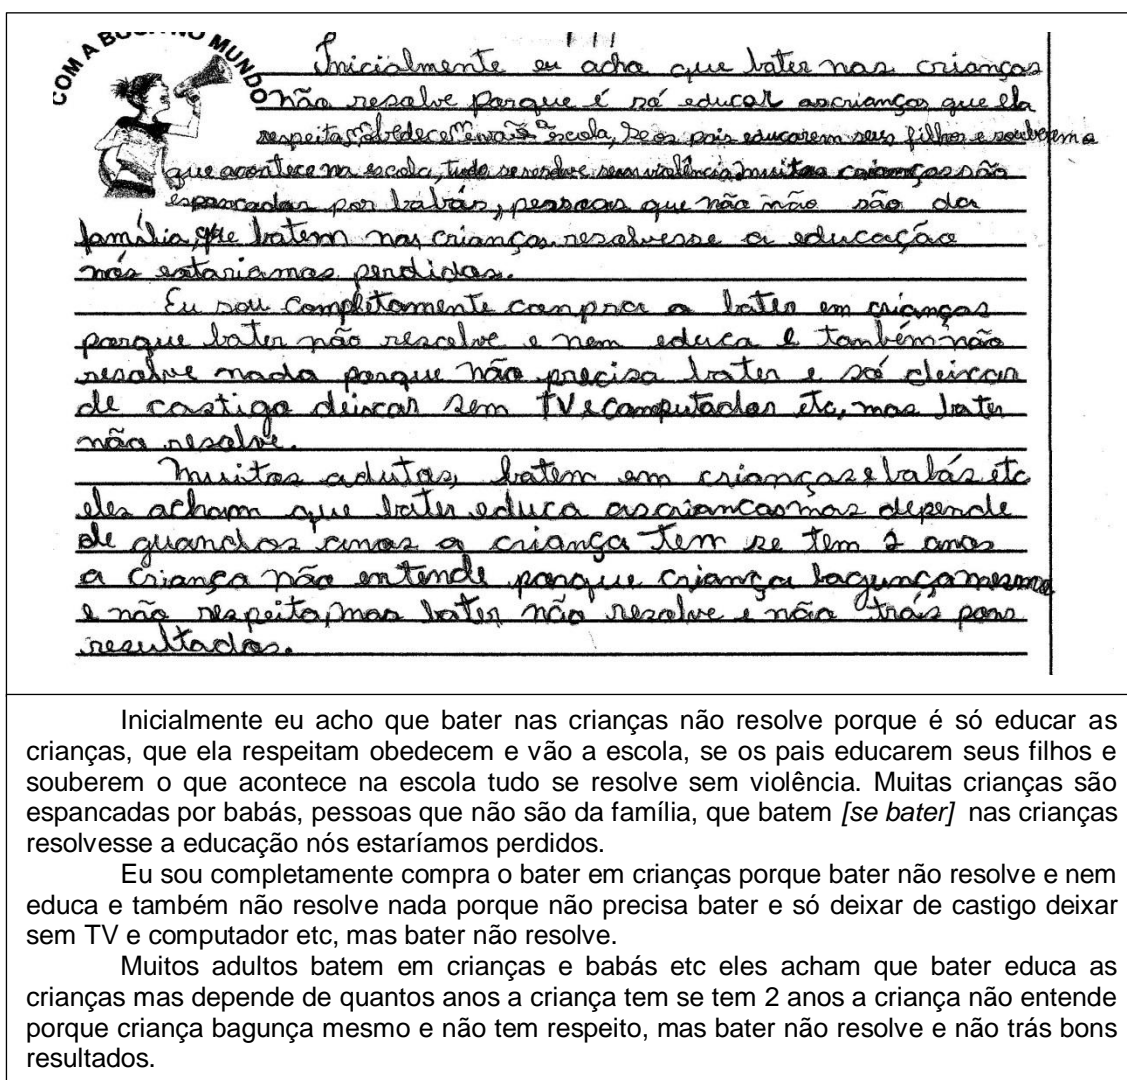 COM A BOCA NO MUNDO
Inicialmente eu acho que bater nas crianças
não resolve porque é só educar ascrianças que ela
respeitam obedecem e vão a escola, se os pais educarem seus filhos e souberem o
que acontece na escola, tudo se resolve sem violência muitas crianças são
espancadas por babás, pessoas que não não são da
família, que batem nas crianças resolvesse a educação
nós estariamos perdidos.
Eu sou completamente conpra o bater em crianças
porque bater não resolve e nem educa e também não
resolve nada porque não precisa bater e só deixar
de castigo deixar sem TV e computador etc, mas bater
não resolve.
Muitos adutos, batem em crianças e babás etc
eles acham que bater educa ascriancas mas depende
de quandos anos a criança tem se tem 2 anos
a criança não entende porque criança bagunça mesmo
e não respeita, mas bater não resolve e não trás
resultados.
Inicialmente eu acho que bater nas crianças não resolve porque é só educar as
crianças, que ela respeitam obedecem e vão a escola, se os pais educarem seus filhos e
souberem o que acontece na escola tudo se resolve sem violência. Muitas crianças são
espancadas por babás, pessoas que não são da família, que batem [se bater] nas crianças
resolvesse a educação nós estaríamos perdidos.
Eu sou completamente compra o bater em crianças porque bater não resolve e nem
educa e também não resolve nada porque não precisa bater e só deixar de castigo deixar
sem TV e computador etc, mas bater não resolve.
Muitos adultos batem em crianças e babás etc eles acham que bater educa as
crianças mas depende de quantos anos a criança tem se tem 2 anos a criança não entende
porque criança bagunça mesmo e não tem respeito, mas bater não resolve e não trás bons
resultados.